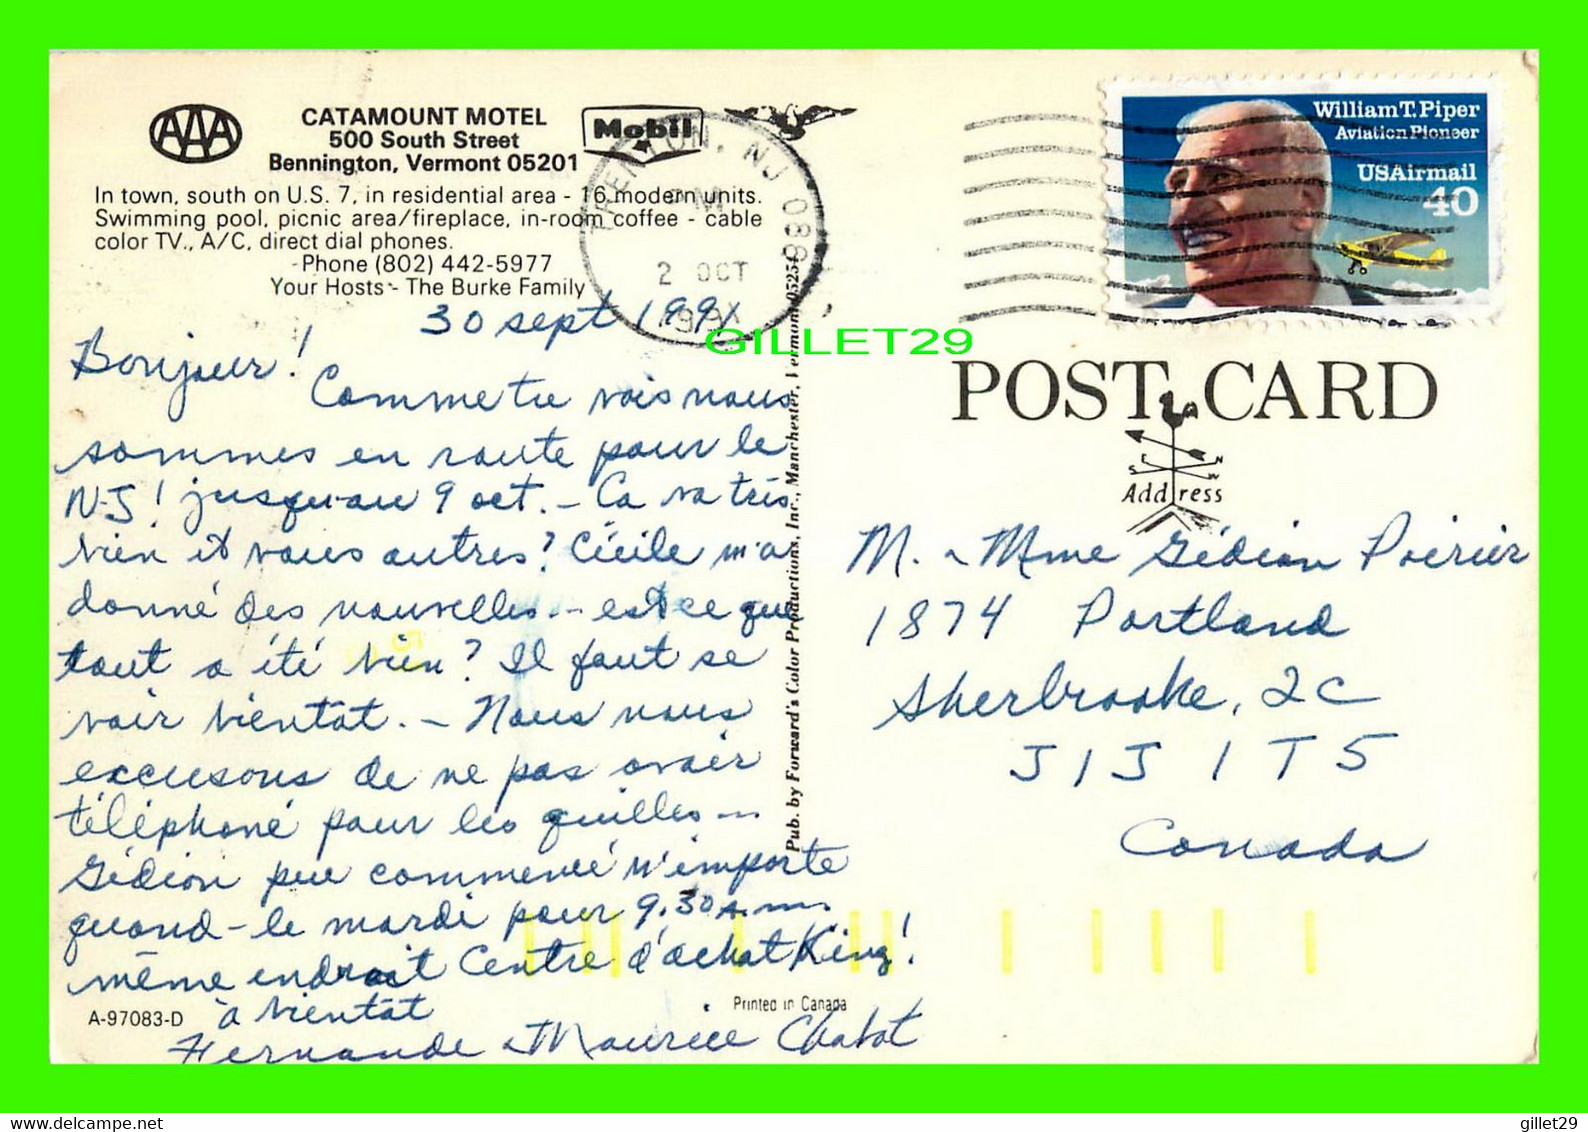 AAA
CATAMOUNT MOTEL
500 South Street
Bennington, Vermont 05201
Mobil
In town, south on U.S. 7, in residential area - 16 modern units.
Swimming pool, picnic area/fireplace, in-room coffee - cable
color TV., A/C, direct dial phones.
Phone (802) 442-5977
Your Hosts - The Burke Family
TRENTON, NJ 086
PM
2 OCT
1991
William T. Piper
Aviation Pioneer
USAirmail
40
GILLET29
30 sept 1991
Bonjour!
Comme tu vois nous
sommes en route pour le
N-J! jusqu'au 9 oct. - Ca va très
bien et vous autres? Cécile m'a
donné des nouvelles - est ce que
tout a été bien? Il faut se
voir bientôt. - Nous nous
excusons de ne pas avoir
téléphoné pour les quilles -
Gédéon peu commencé n'importe
quand - le mardi pour 9.30 A.m.
même endroit Centre d'achat King!
à bientôt
Fernande & Maurice Chabot
A-97083-D
Pub. by Forward's Color Productions, Inc., Manchester, Vermont 05254
Printed in Canada
POST CARD
E N
S W
Address
M. & Mme Gédéon Poirier
1874 Portland
Sherbrooke, QC
J1J 1T5
Canada
gillet29